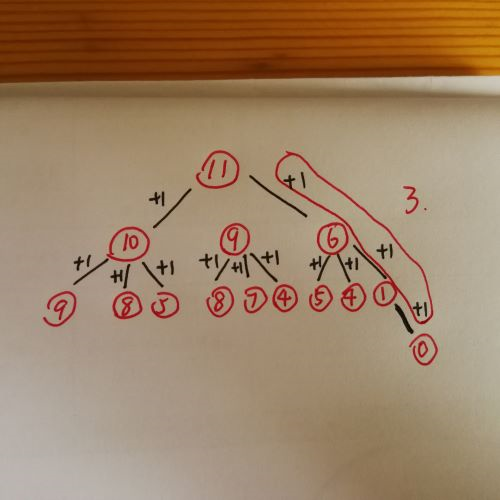 11
+1 +1 3.
10 9 6
+1 +1 +1 +1 +1 +1 +1 +1 +1
9 8 5 8 7 4 5 4 1 +1
0